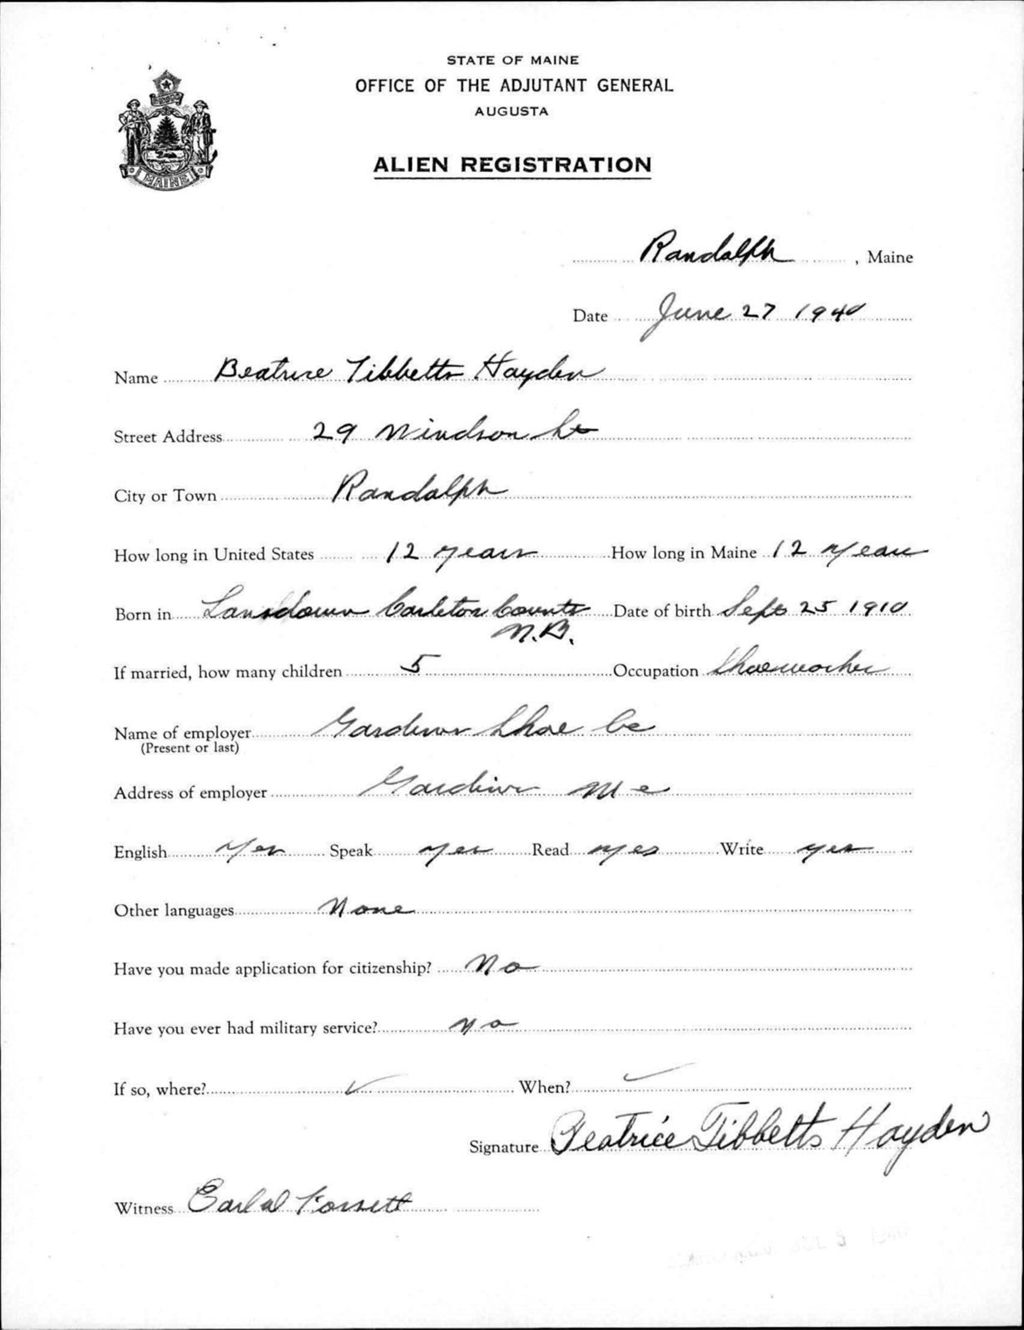 STATE OF MAINE
OFFICE OF THE ADJUTANT GENERAL
AUGUSTA
ALIEN REGISTRATION
MAINE
Randolph, Maine
Date June 27 1940
Name Beatrice Tibbetts Hayden
Street Address 29 Windsor St
City or Town Randolph
How long in United States 12 years How long in Maine 12 years
Born in Lansdown Carleton County Date of birth Sept 25 1910
N.B.
If married, how many children 5 Occupation Shoeworker
Name of employer Gardiner Shoe Co
(Present or last)
Address of employer Gardiner Me
English Yes Speak yes Read yes Write yes
Other languages None
Have you made application for citizenship? No
Have you ever had military service? no
If so, where? ✓ When? ✓
Signature Beatrice Tibbetts Hayden
Witness Earl